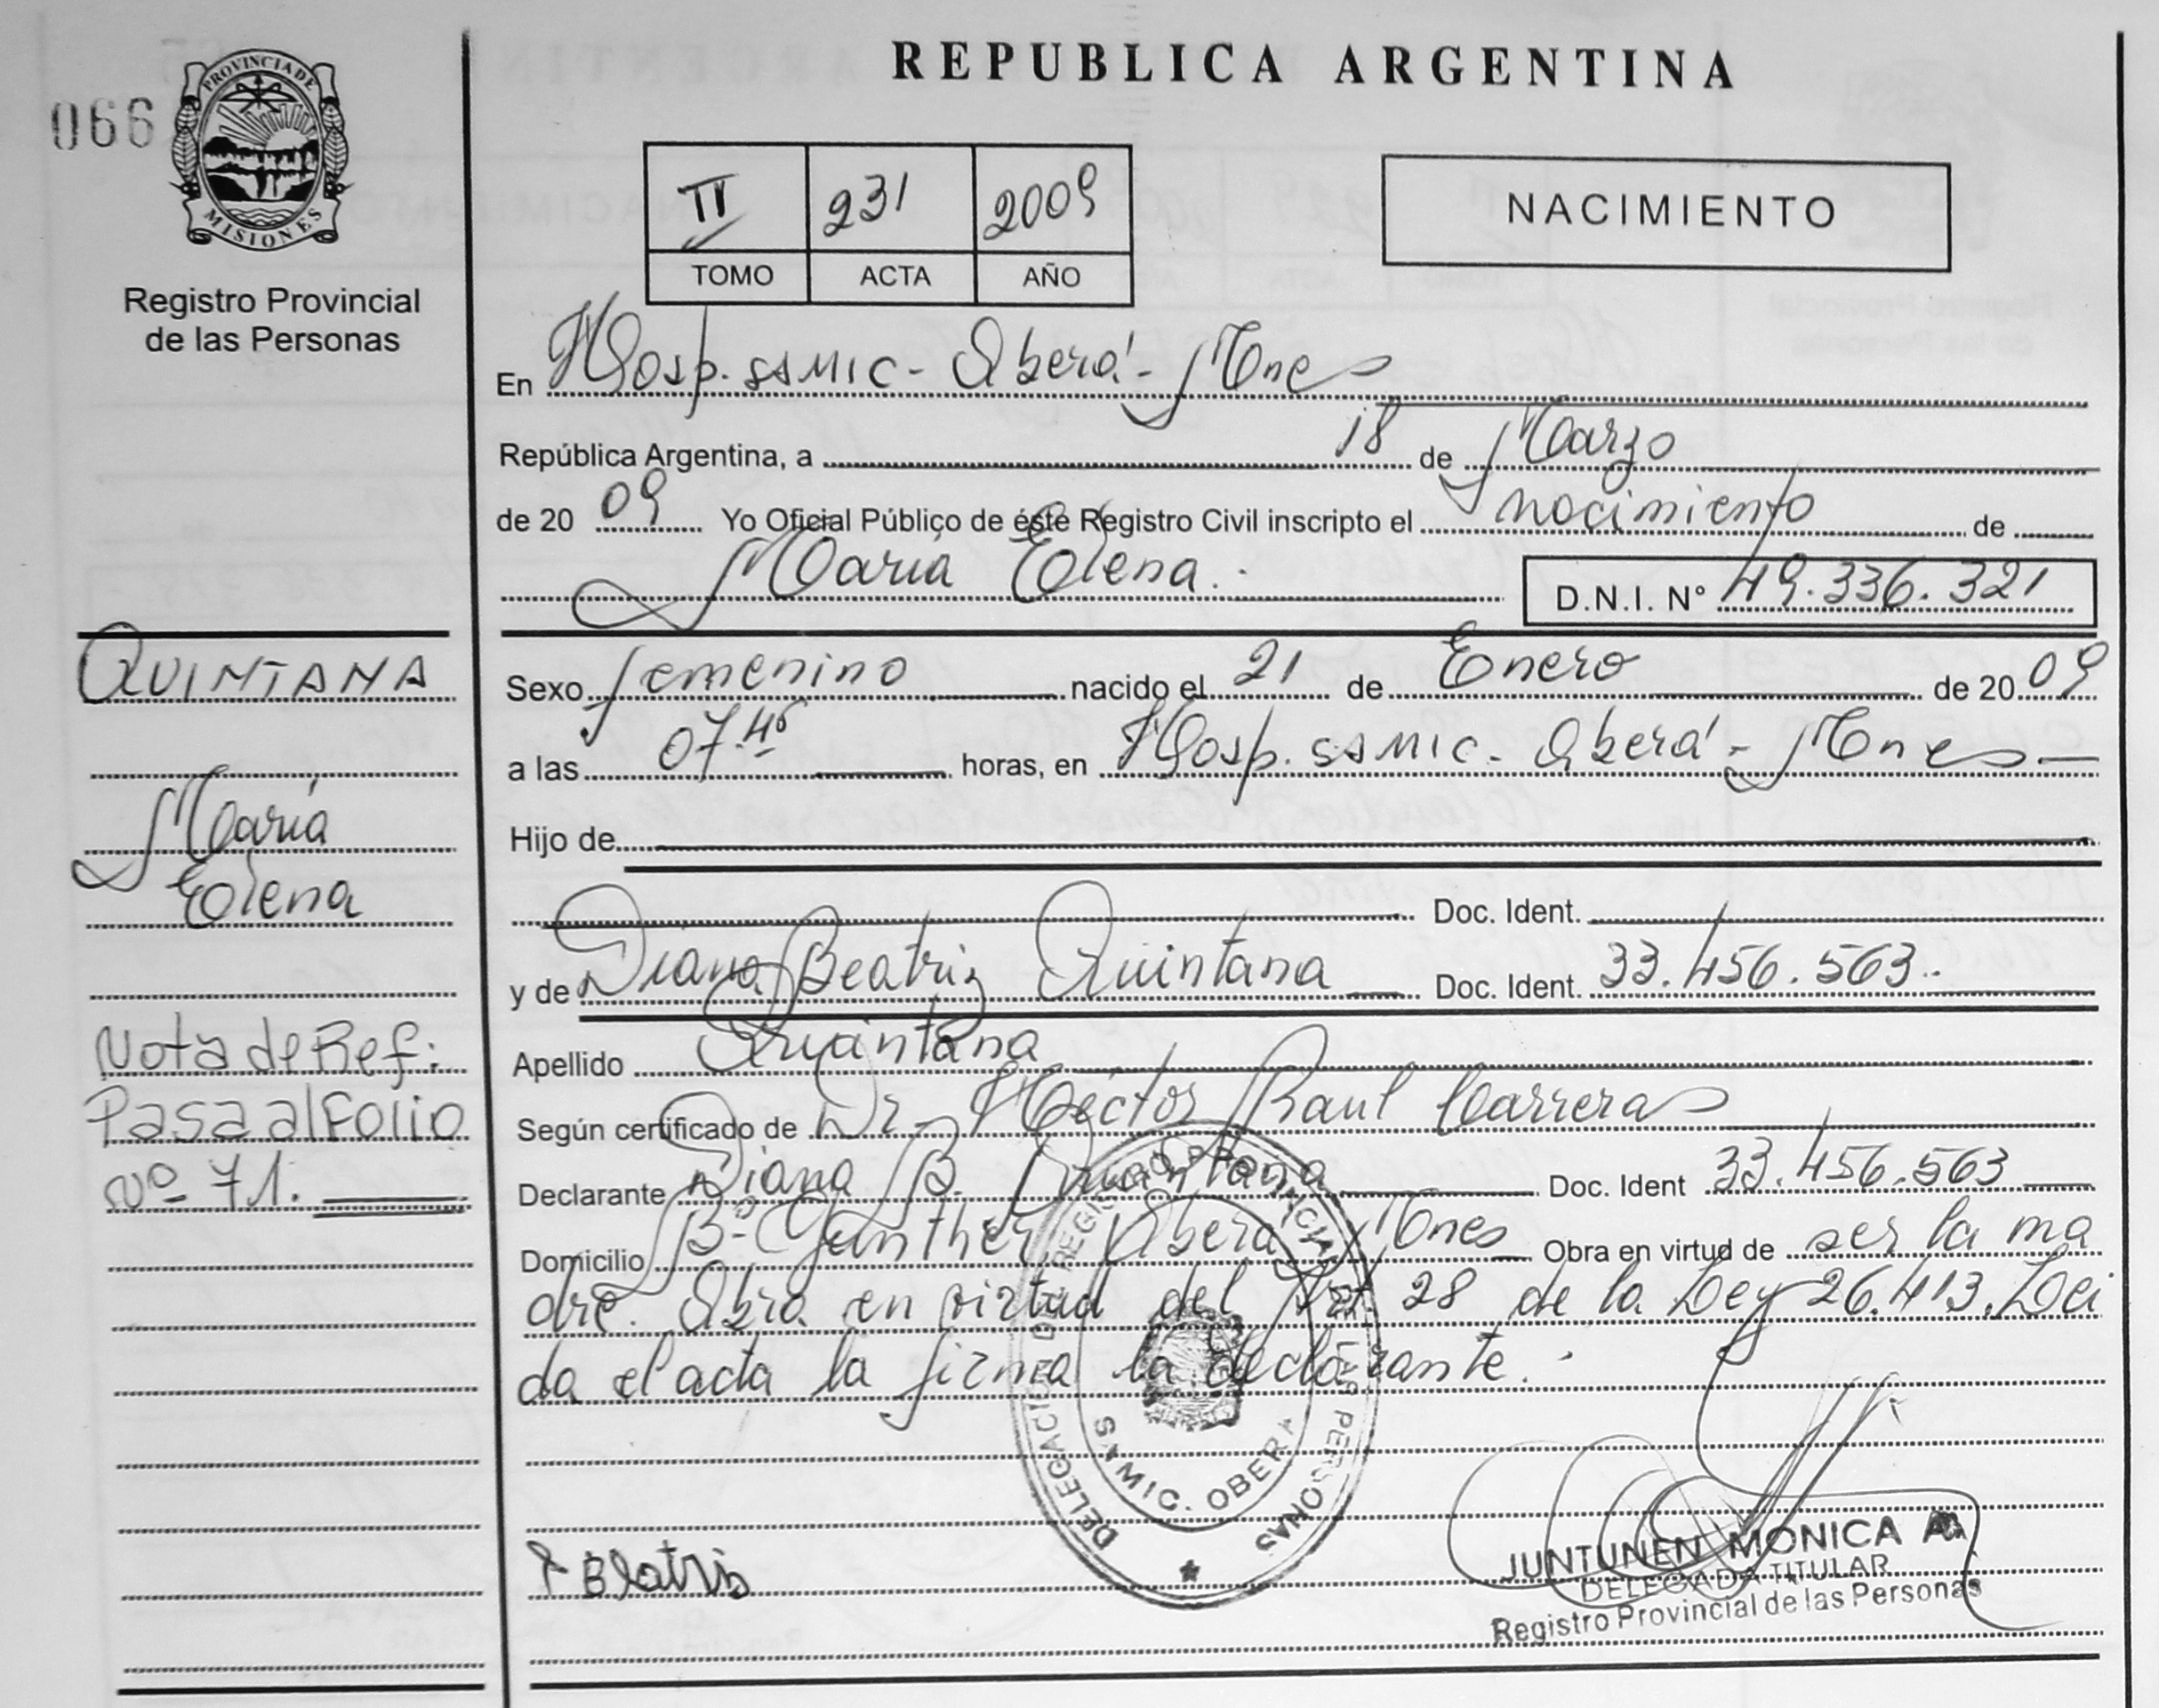 REPUBLICA ARGENTINA
066
PROVINCIA DE
MISIONES
Registro Provincial
de las Personas
II 231 2009
TOMO ACTA AÑO
NACIMIENTO
En Hosp. SAMIC - Oberá - Mnes
República Argentina, a 18 de Marzo
de 20 09 Yo Oficial Público de éste Registro Civil inscripto el nacimiento de
María Elena.
D.N.I. N° 49.336.321
QUINTANA
María
Elena
Nota de Ref:
Pasa al Folio
Nº 71.
Sexo femenino nacido el 21 de Enero de 20 09
a las 07.45 horas, en Hosp. SAMIC - Oberá - Mnes
Hijo de
Doc. Ident.
y de Diana Beatriz Quintana Doc. Ident. 33.456.563.
Apellido Quintana
Según certificado de Dr. Héctor Raul Carreras
Declarante Diana B. Quintana Doc. Ident 33.456.563
Domicilio Bº Gunther Oberá Mnes Obra en virtud de ser la ma
dre. Obra en virtud del Art. 28 de la Ley 26.413. Lei
da el acta la firma la declarante.
DELEGACION REGISTRO PROVINCIAL DE LAS PERSONAS
SAMIC. OBERA
Beatris
JUNTUNEN MONICA A.
DELEGADA TITULAR
Registro Provincial de las Personas